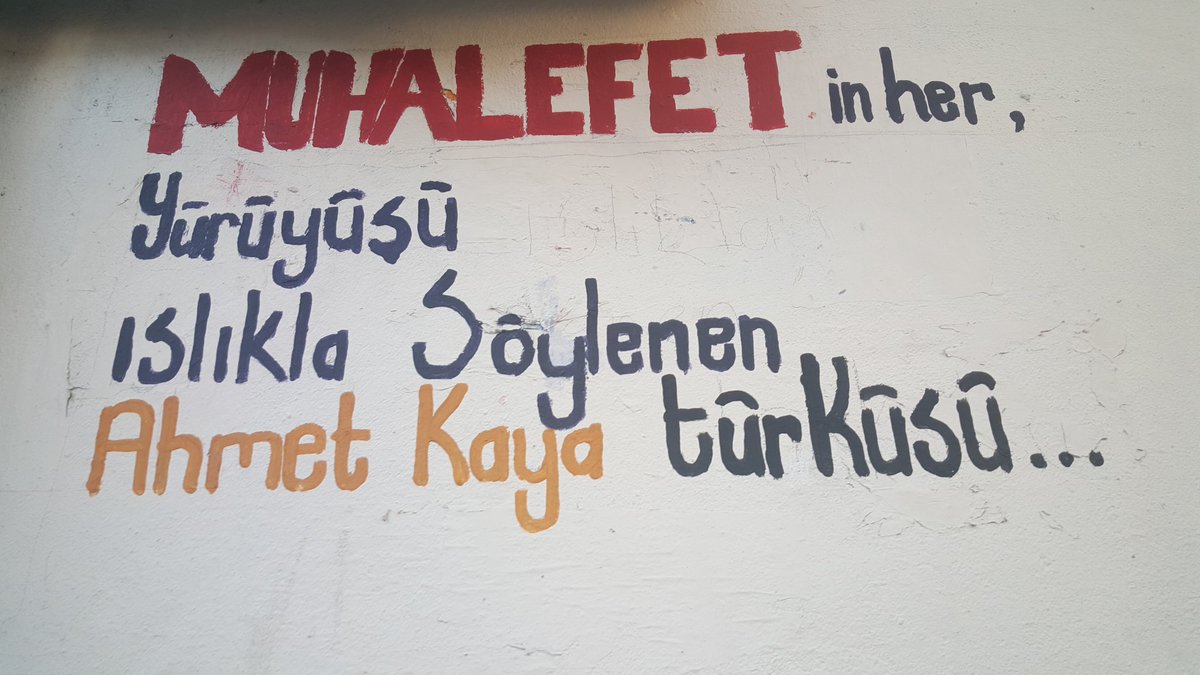 MUHALEFET in her,
Yürüyüşü
ıslıkla Söylenen
Ahmet Kaya türKüsü...